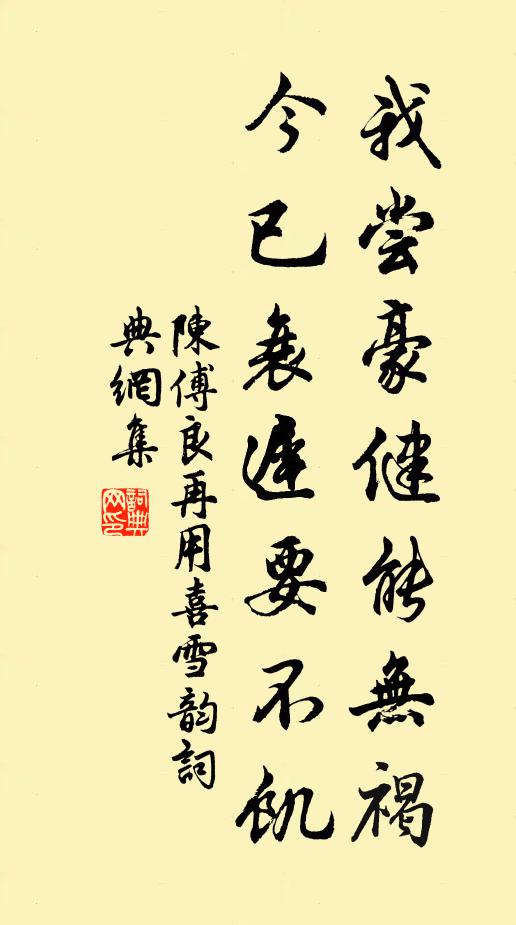 我尝豪健能無褐
今已衰遲要不飢
陳傅良再用喜雪韵詞
典網集
詞典网印